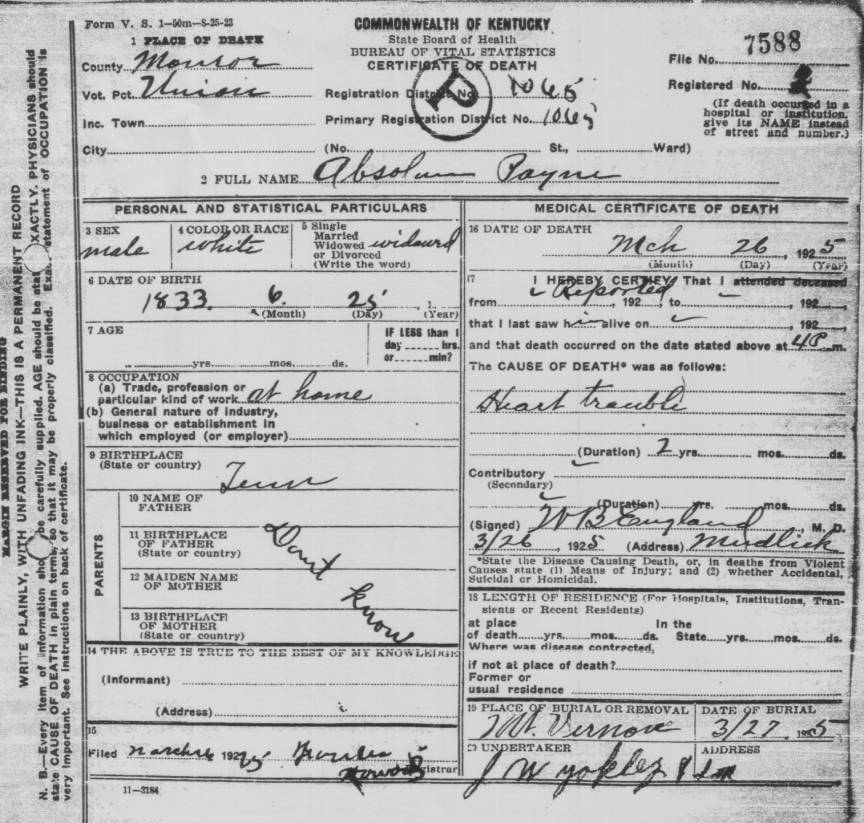 Form V. S. 1—50m—8-25-23
COMMONWEALTH OF KENTUCKY
State Board of Health
BUREAU OF VITAL STATISTICS
CERTIFICATE OF DEATH
File No. 7588
Registered No. 2
(If death occurred in a
hospital or institution,
give its NAME instead
of street and number.)
1 PLACE OF DEATH
County Monroe
Vot. Pct. Union
Registration District No. 1065
Inc. Town
Primary Registration District No. 1065
City
(No. St., Ward)
2 FULL NAME Absolum Payne
PERSONAL AND STATISTICAL PARTICULARS
3 SEX
male
4 COLOR OR RACE
white
5 Single
Married
Widowed
or Divorced
(Write the word)
widowed
6 DATE OF BIRTH
1833 6 25, 1
(Month) (Day) (Year)
7 AGE
yrs. mos. ds.
IF LESS than 1
day hrs.
or min?
8 OCCUPATION
(a) Trade, profession or
particular kind of work at home
(b) General nature of industry,
business or establishment in
which employed (or employer)
9 BIRTHPLACE
(State or country)
Tenn
PARENTS
10 NAME OF
FATHER
11 BIRTHPLACE
OF FATHER
(State or country)
12 MAIDEN NAME
OF MOTHER
13 BIRTHPLACE
OF MOTHER
(State or country)
Dont know
14 THE ABOVE IS TRUE TO THE BEST OF MY KNOWLEDGE
(Informant)
(Address)
15
Filed 192
Registrar
11—3184
MEDICAL CERTIFICATE OF DEATH
16 DATE OF DEATH
Mch 26, 1925
(Month) (Day) (Year)
17 I HEREBY CERTIFY, That I attended deceased
Reported
from , 192 , to , 192 ,
that I last saw h alive on , 192 ,
and that death occurred on the date stated above at 4P m.
The CAUSE OF DEATH* was as follows:
Heart trouble
(Duration) 2 yrs. mos. ds.
Contributory
(Secondary)
(Duration) yrs. mos. ds.
(Signed) W B England, M. D.
3/26, 1925 (Address) Mudlick
*State the Disease Causing Death, or, in deaths from Violent
Causes state (1) Means of Injury; and (2) whether Accidental,
Suicidal or Homicidal.
18 LENGTH OF RESIDENCE (For Hospitals, Institutions, Tran-
sients or Recent Residents)
at place In the
of death yrs. mos. ds. State yrs. mos. ds.
Where was disease contracted,
if not at place of death?
Former or
usual residence
19 PLACE OF BURIAL OR REMOVAL
Mt. Vernon
DATE OF BURIAL
3/27, 1925
20 UNDERTAKER
J W Yokley & Son
ADDRESS
MARGIN RESERVED FOR BINDING
WRITE PLAINLY, WITH UNFADING INK—THIS IS A PERMANENT RECORD
N. B.—Every item of information should be carefully supplied. AGE should be stated EXACTLY. PHYSICIANS should
state CAUSE OF DEATH in plain terms, so that it may be properly classified. Exact statement of OCCUPATION is
very important. See instructions on back of certificate.